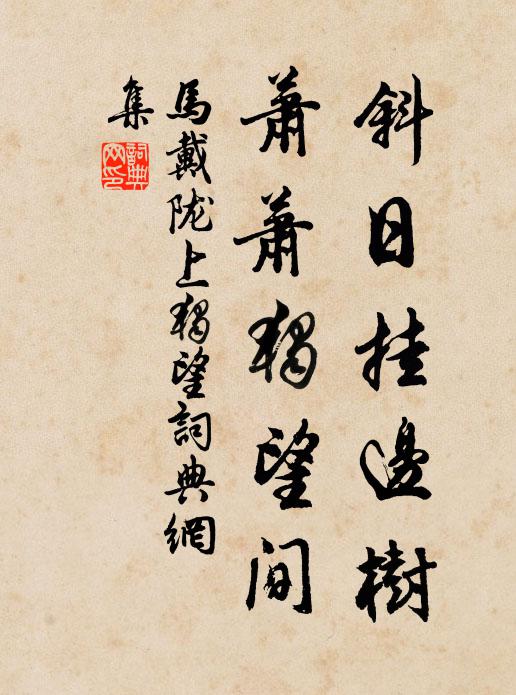 斜日挂邊樹
蕭蕭獨望間
馬戴陇上獨望詞典網
集
詞典
网印